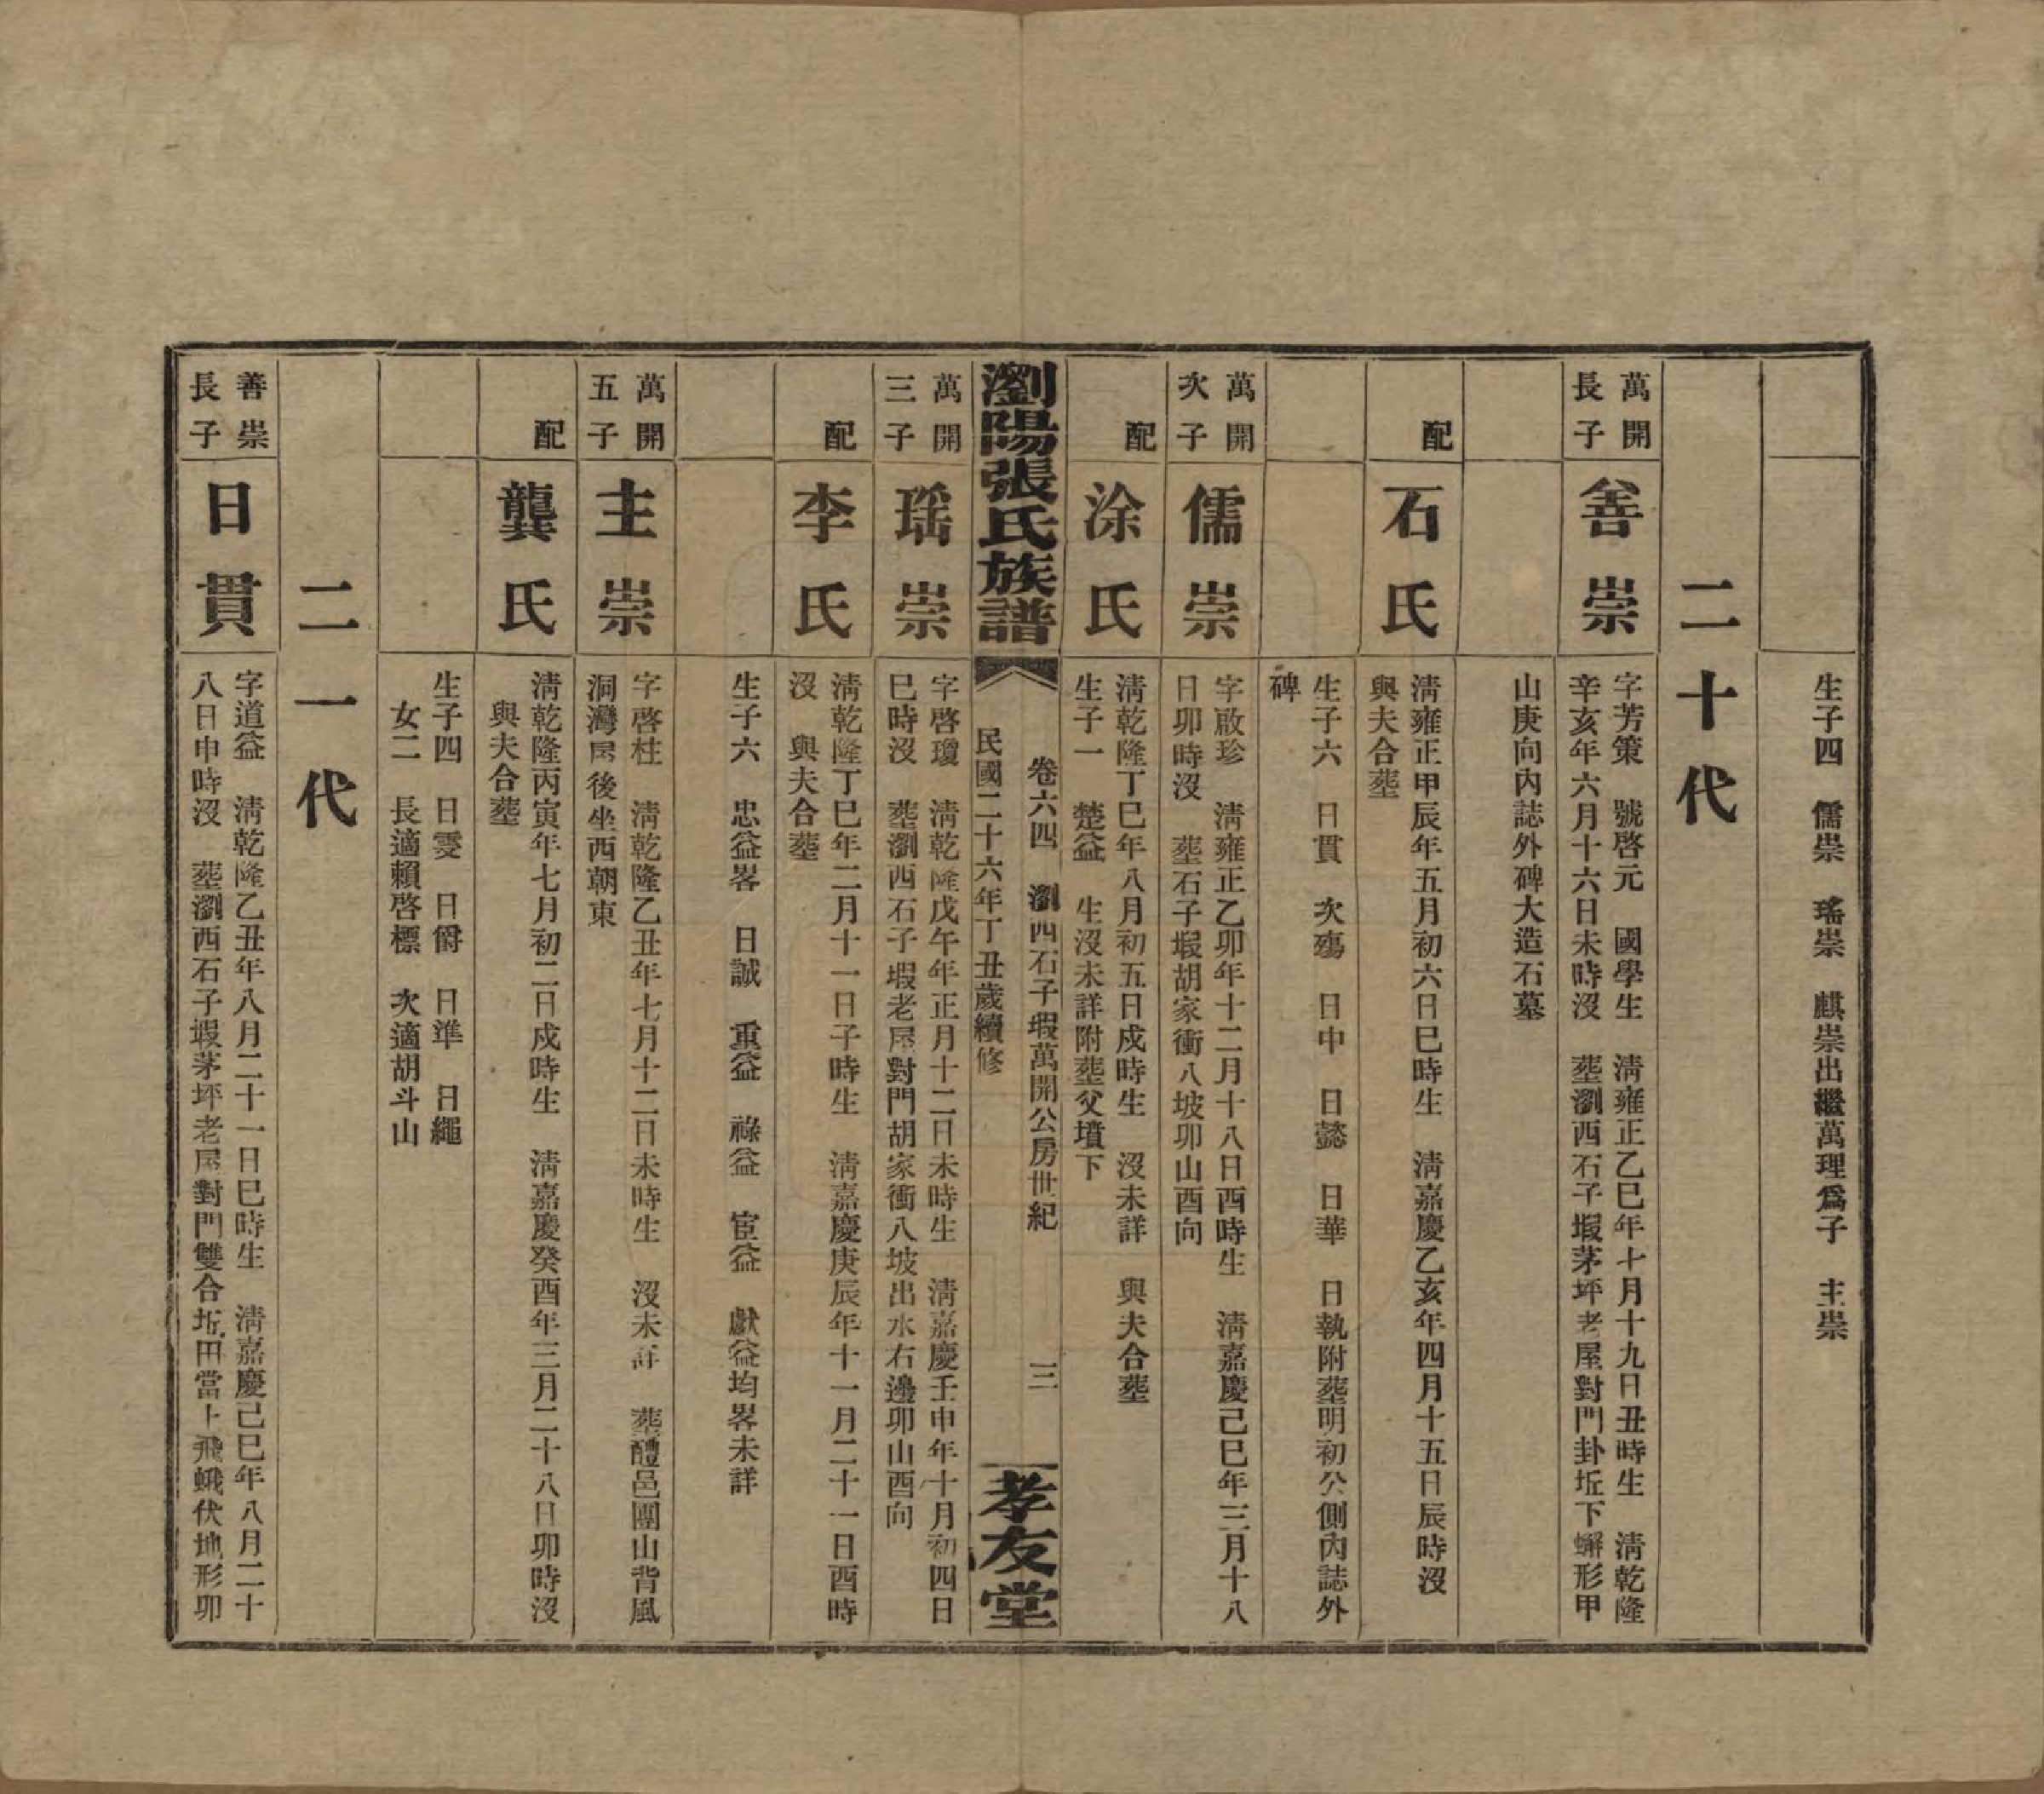 生子四　儒崇　瑤崇　麒崇出繼萬理爲子　主崇
二十代
萬開
長子
善崇
字芳策　號啓元　國學生　淸雍正乙巳年七月十九日丑時生　淸乾隆
辛亥年六月十六日未時沒　塟瀏西石子塅茅坪老屋對門卦坵下蠏形甲
山庚向內誌外碑大造石墓
配
石氏
淸雍正甲辰年五月初六日巳時生　淸嘉慶乙亥年四月十五日辰時沒
與夫合塟
生子六　日貫　次殤　日中　日懿　日華　日執附塟明初公側內誌外
碑
萬開
次子
儒崇
字啟珍　淸雍正乙卯年十二月十八日酉時生　淸嘉慶己巳年三月十八
日卯時沒　塟石子塅胡家衝八坡卯山酉向
配
涂氏
淸乾隆丁巳年八月初五日戍時生　沒未詳　與夫合塟
生子一　楚益　生沒未詳附塟父墳下
瀏陽張氏族譜
卷六四　瀏西石子塅萬開公房世紀　三
民國二十六年丁丑歲續修
孝友堂
萬開
三子
瑤崇
字啓瓊　淸乾隆戊午年正月十二日未時生　淸嘉慶壬申年十月初四日
巳時沒　塟瀏西石子塅老屋對門胡家衝八坡出水右邊卯山酉向
配
李氏
淸乾隆丁巳年二月十一日子時生　淸嘉慶庚辰年十一月二十一日酉時
沒　與夫合塟
生子六　忠益畧　日誠　重益　祿益　宦益　獻益均畧未詳
萬開
五子
主崇
字啓柱　淸乾隆乙丑年七月十二日未時生　沒未詳　塟醴邑團山背風
洞灣屋後坐西朝東
配
龔氏
淸乾隆丙寅年七月初二日戍時生　淸嘉慶癸酉年三月二十八日卯時沒
與夫合塟
生子四　日雯　日爵　日準　日繩
女二　長適賴啓標　次適胡斗山
二一代
善崇
長子
日貫
字道益　淸乾隆乙丑年八月二十一日巳時生　淸嘉慶己巳年八月二十
八日申時沒　塟瀏西石子塅茅坪老屋對門雙合坵田當上飛蛾伏地形卯